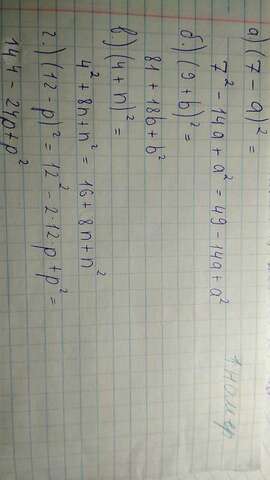 1 номер
а) (7 - a)² =
7² - 14a + a² = 49 - 14a + a²
б.) (9 + b)² =
81 + 18b + b²
в.) (4 + n)² =
4² + 8n + n² = 16 + 8n + n²
г.) (12 - p)² = 12² - 2·12 p + p² =
144 - 24p + p²